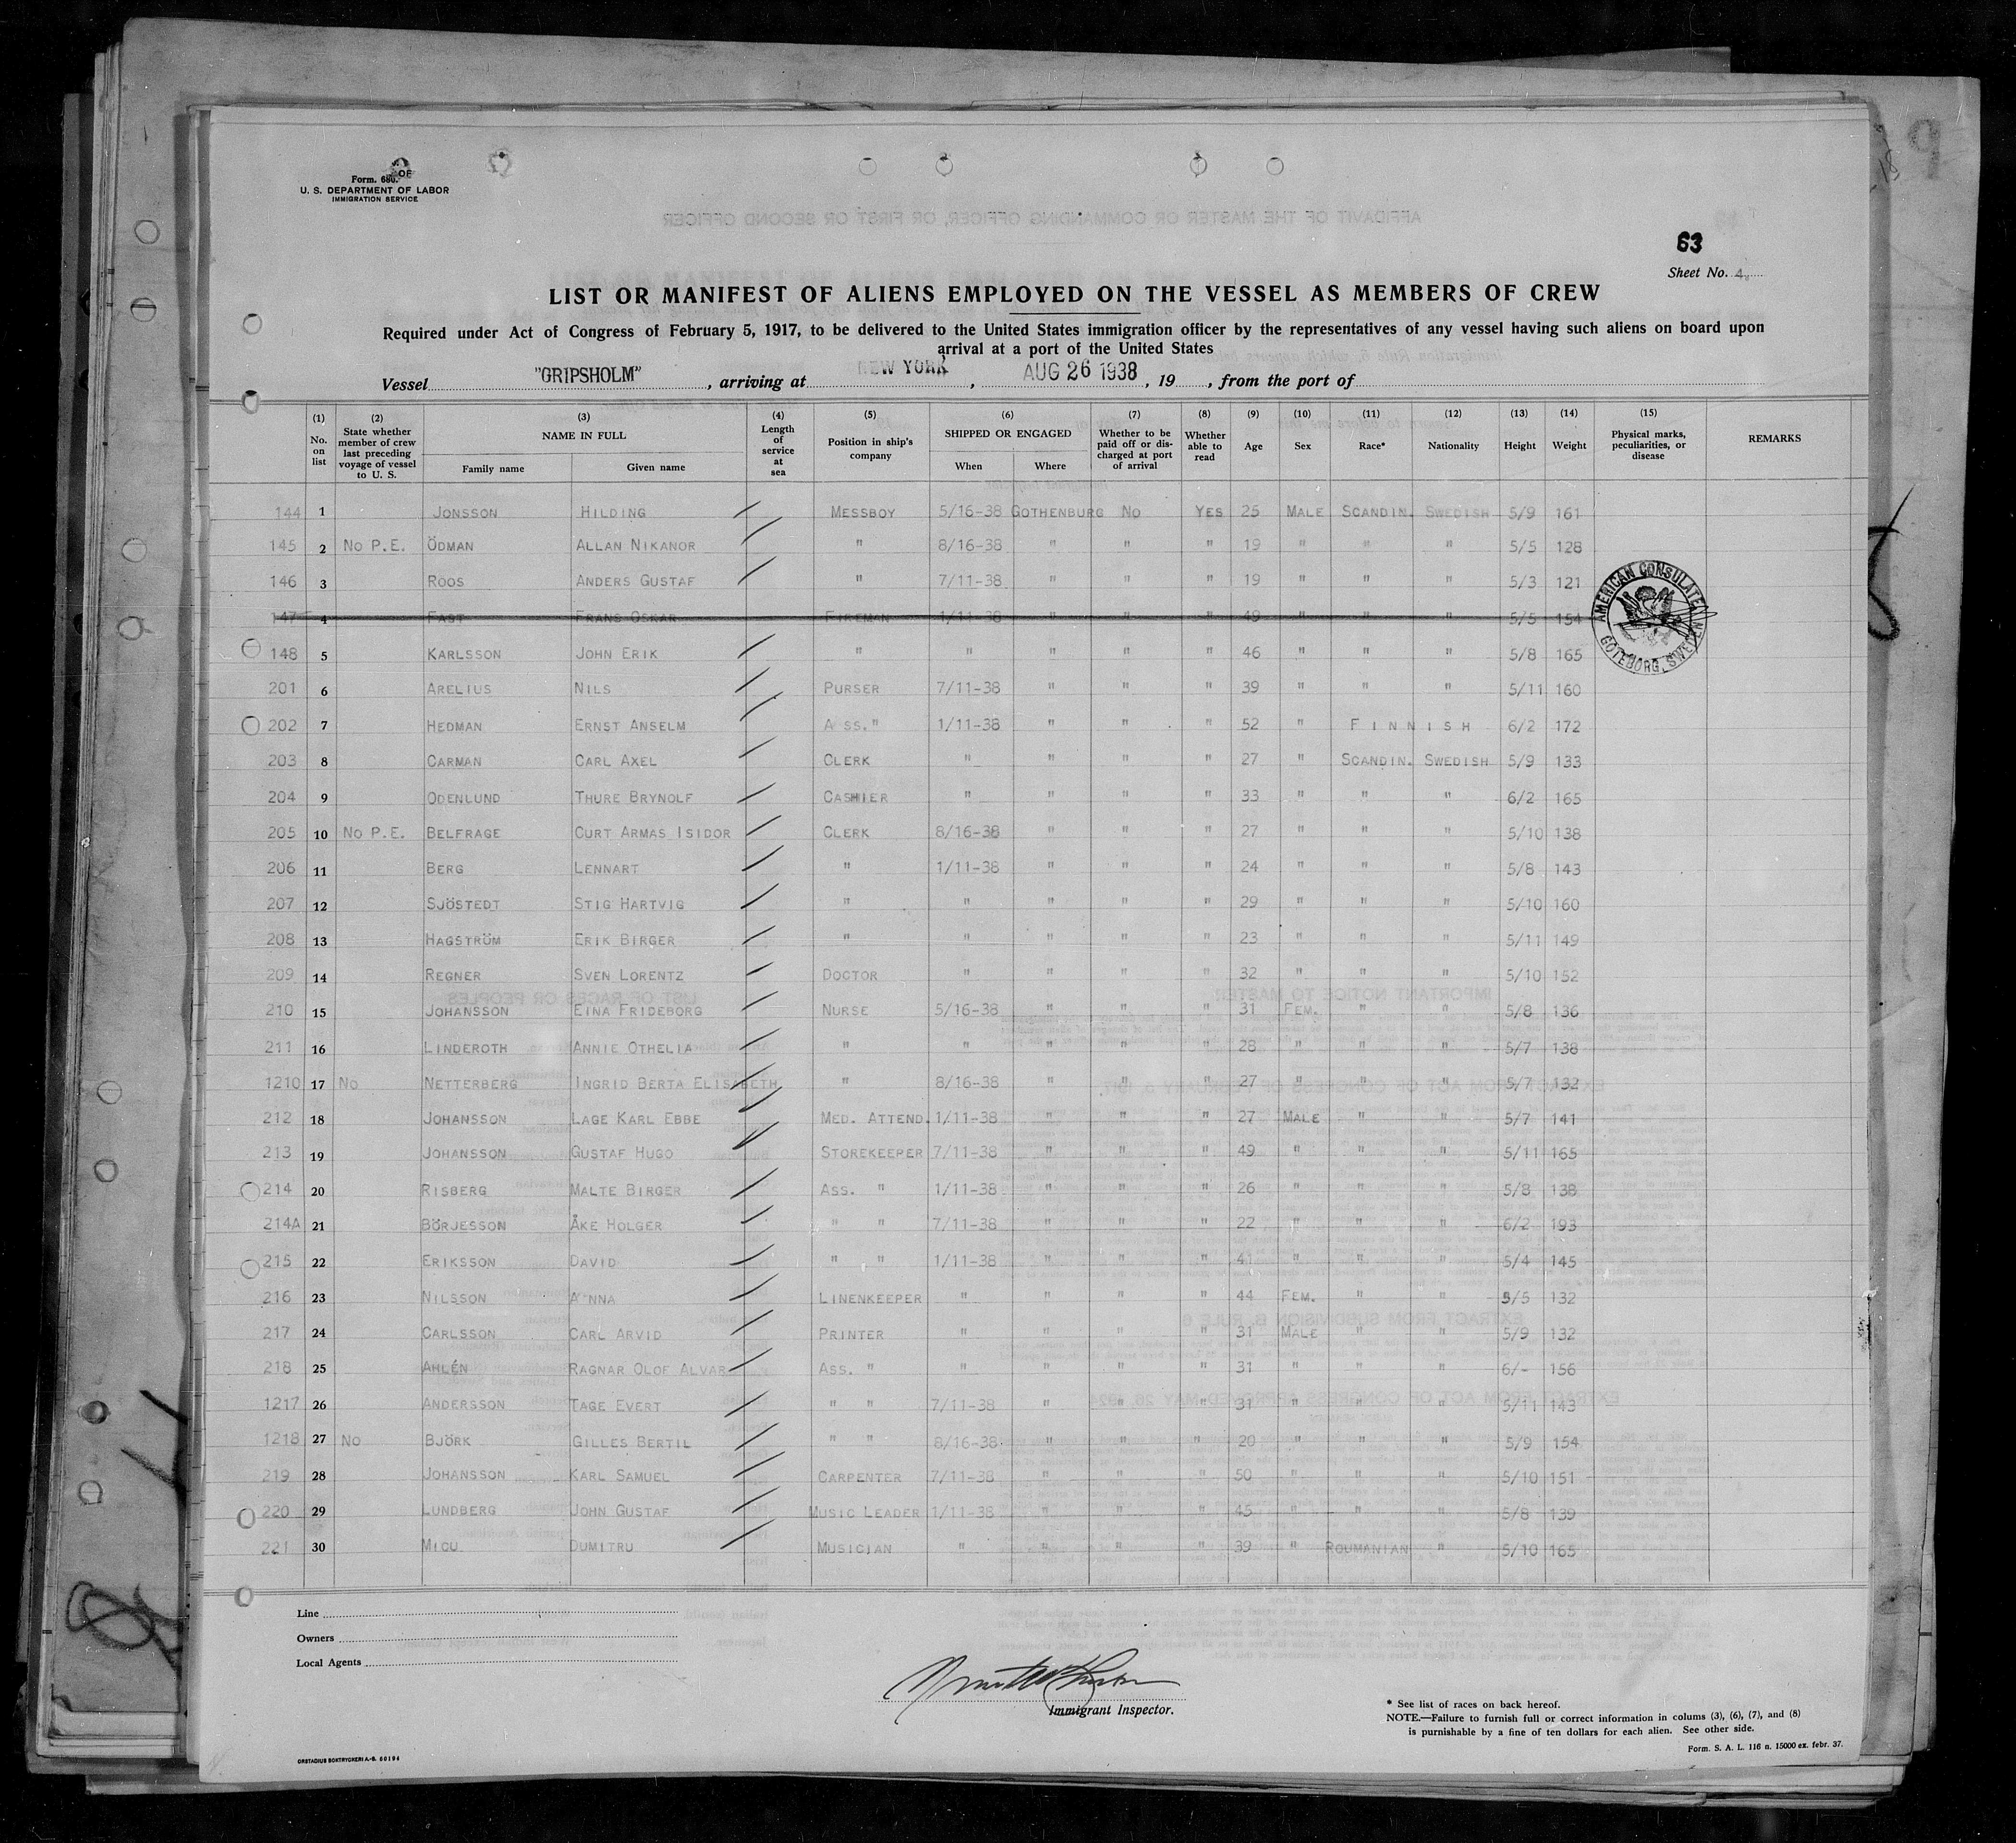 Form. 680. OF
U. S. DEPARTMENT OF LABOR
IMMIGRATION SERVICE
63
Sheet No. 4.
LIST OR MANIFEST OF ALIENS EMPLOYED ON THE VESSEL AS MEMBERS OF CREW
Required under Act of Congress of February 5, 1917, to be delivered to the United States immigration officer by the representatives of any vessel having such aliens on board upon
arrival at a port of the United States
Vessel "GRIPSHOLM", arriving at NEW YORK, AUG 26 1938, 19 , from the port of
(1) No. on list (2) State whether member of crew last preceding voyage of vessel to U. S. (3) NAME IN FULL Family name Given name (4) Length of service at sea (5) Position in ship's company (6) SHIPPED OR ENGAGED When Where (7) Whether to be paid off or discharged at port of arrival (8) Whether able to read (9) Age (10) Sex (11) Race* (12) Nationality (13) Height (14) Weight (15) Physical marks, peculiarities, or disease REMARKS
144 1 JONSSON HILDING MESSBOY 5/16-38 GOTHENBURG NO YES 25 MALE SCANDIN. SWEDISH 5/9 161
145 2 NO P.E. ÖDMAN ALLAN NIKANOR " 8/16-38 " " " 19 " " " 5/5 128
146 3 ROOS ANDERS GUSTAF " 7/11-38 " " " 19 " " " 5/3 121
147 4 FAST FRANS OSKAR FIREMAN 1/11-38 " " " 49 " " " 5/5 154
148 5 KARLSSON JOHN ERIK " " " " " 46 " " " 5/8 165
201 6 ARELIUS NILS PURSER 7/11-38 " " " 39 " " " 5/11 160
202 7 HEDMAN ERNST ANSELM ASS. " 1/11-38 " " " 52 " FINNISH 6/2 172
203 8 CARMAN CARL AXEL CLERK " " " " 27 " SCANDIN. SWEDISH 5/9 133
204 9 ODENLUND THURE BRYNOLF CASHIER " " " " 33 " " " 6/2 165
205 10 NO P.E. BELFRAGE CURT ARMAS ISIDOR CLERK 8/16-38 " " " 27 " " " 5/10 138
206 11 BERG LENNART " 1/11-38 " " " 24 " " " 5/8 143
207 12 SJÖSTEDT STIG HARTVIG " " " " " 29 " " " 5/10 160
208 13 HAGSTRÖM ERIK BIRGER " " " " " 23 " " " 5/11 149
209 14 REGNER SVEN LORENTZ DOCTOR " " " " 32 " " " 5/10 152
210 15 JOHANSSON EINA FRIDEBORG NURSE 5/16-38 " " " 31 FEM. " " 5/8 136
211 16 LINDEROTH ANNIE OTHELIA " " " " " 28 " " " 5/7 138
1210 17 NO NETTERBERG INGRID BERTA ELISABETH " 8/16-38 " " " 27 " " " 5/7 132
212 18 JOHANSSON LAGE KARL EBBE MED. ATTEND. 1/11-38 " " " 27 MALE " " 5/7 141
213 19 JOHANSSON GUSTAF HUGO STOREKEEPER 7/11-38 " " " 49 " " " 5/11 165
214 20 RISBERG MALTE BIRGER ASS. " 1/11-38 " " " 26 " " " 5/8 138
214A 21 BÖRJESSON ÅKE HOLGER " " 7/11-38 " " " 22 " " " 6/2 193
215 22 ERIKSSON DAVID " " 1/11-38 " " " 41 " " " 5/4 145
216 23 NILSSON ANNA LINENKEEPER " " " " 44 FEM. " " 5/5 132
217 24 CARLSSON CARL ARVID PRINTER " " " " 31 MALE " " 5/9 132
218 25 AHLÉN RAGNAR OLOF ALVAR ASS. " " " " " 31 " " " 6/- 156
1217 26 ANDERSSON TAGE EVERT " " 7/11-38 " " " 31 " " " 5/11 143
1218 27 NO BJÖRK GILLES BERTIL " " 8/16-38 " " " 20 " " " 5/9 154
219 28 JOHANSSON KARL SAMUEL CARPENTER 7/11-38 " " " 50 " " " 5/10 151
220 29 LUNDBERG JOHN GUSTAF MUSIC LEADER 1/11-38 " " " 45 " " " 5/8 139
221 30 MICU DUMITRU MUSICIAN " " " " 39 " ROUMANIAN " 5/10 165
AMERICAN CONSULATE
GOTEBORG, SWEDEN
Line
Owners
Local Agents
Immigrant Inspector.
* See list of races on back hereof.
NOTE.—Failure to furnish full or correct information in colums (3), (6), (7), and (8)
is purnishable by a fine of ten dollars for each alien. See other side.
Form. S. A. L. 116 n. 15000 ex. febr. 37.
ORSTADIUS BOKTRYCKERI A.-B. 60194